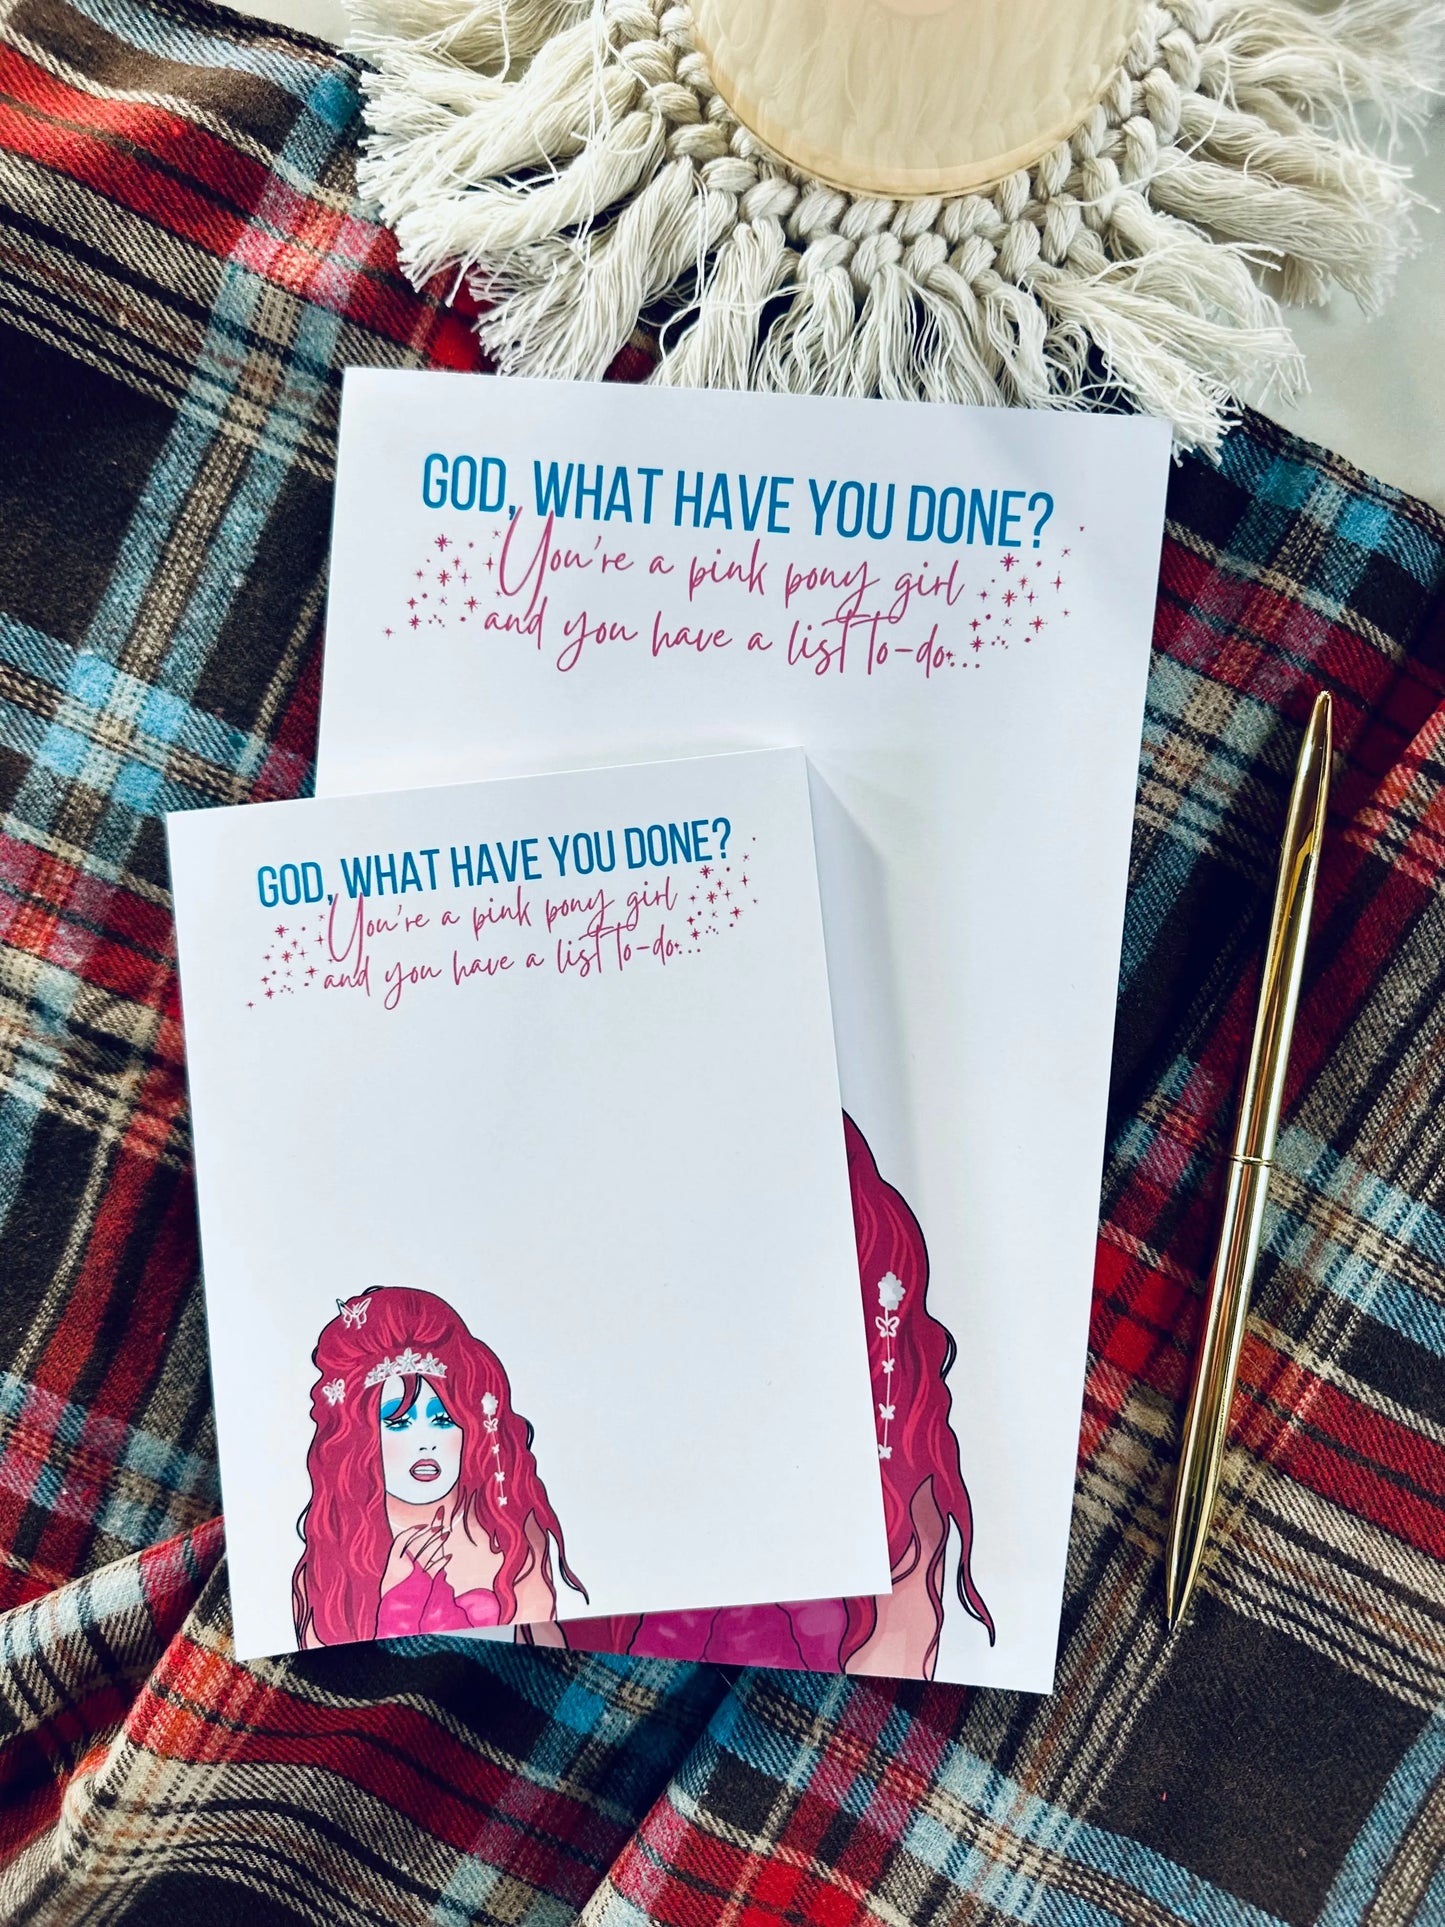 GOD, WHAT HAVE YOU DONE?
You're a pink pony girl
and you have a list to-do...
GOD, WHAT HAVE YOU DONE?
You're a pink pony girl
and you have a list to-do...